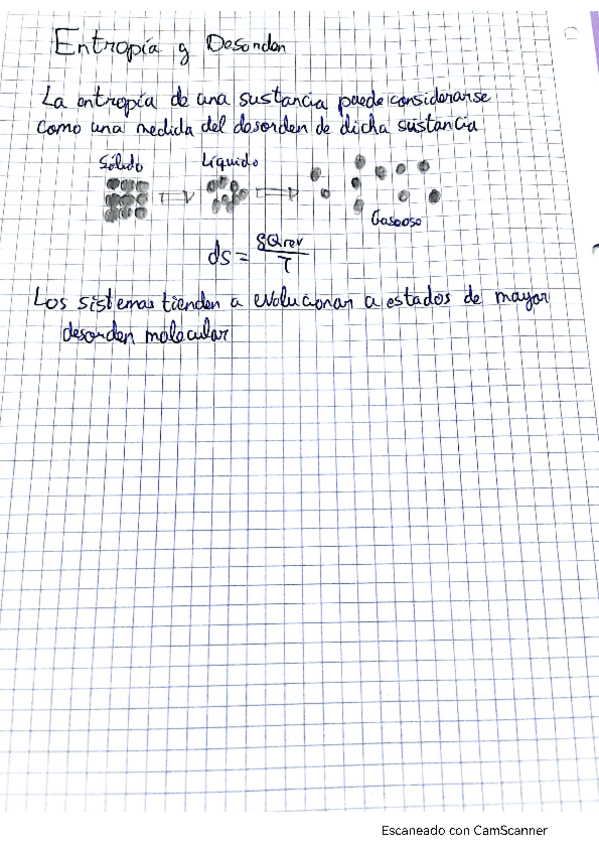 Entropía y Desorden
La entropía de una sustancia puede considerarse
como una medida del desorden de dicha sustancia
Sólido Líquido
Gaseoso
ds = δQrev / T
Los sistemas tienden a evolucionar a estados de mayor
desorden molecular
Escaneado con CamScanner